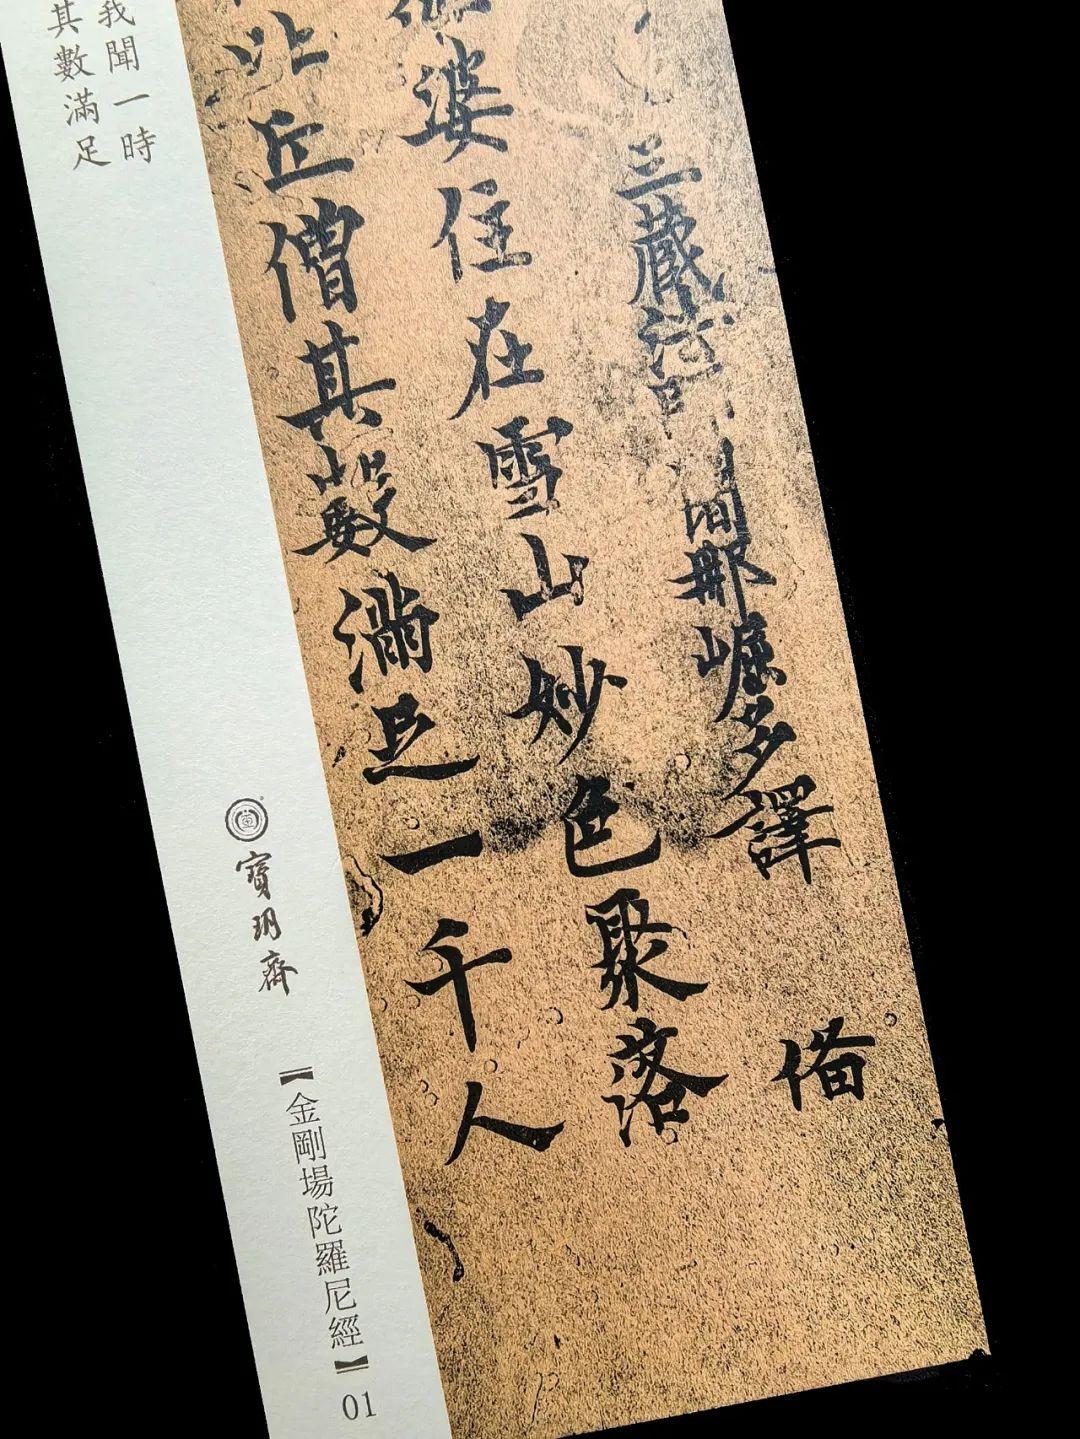 三藏法師闍那崛多譯
備
婆住在雪山妙色聚落
比丘僧其數滿足一千人
我聞一時
其數滿足
寶玥齋
【金剛場陀羅尼經】01